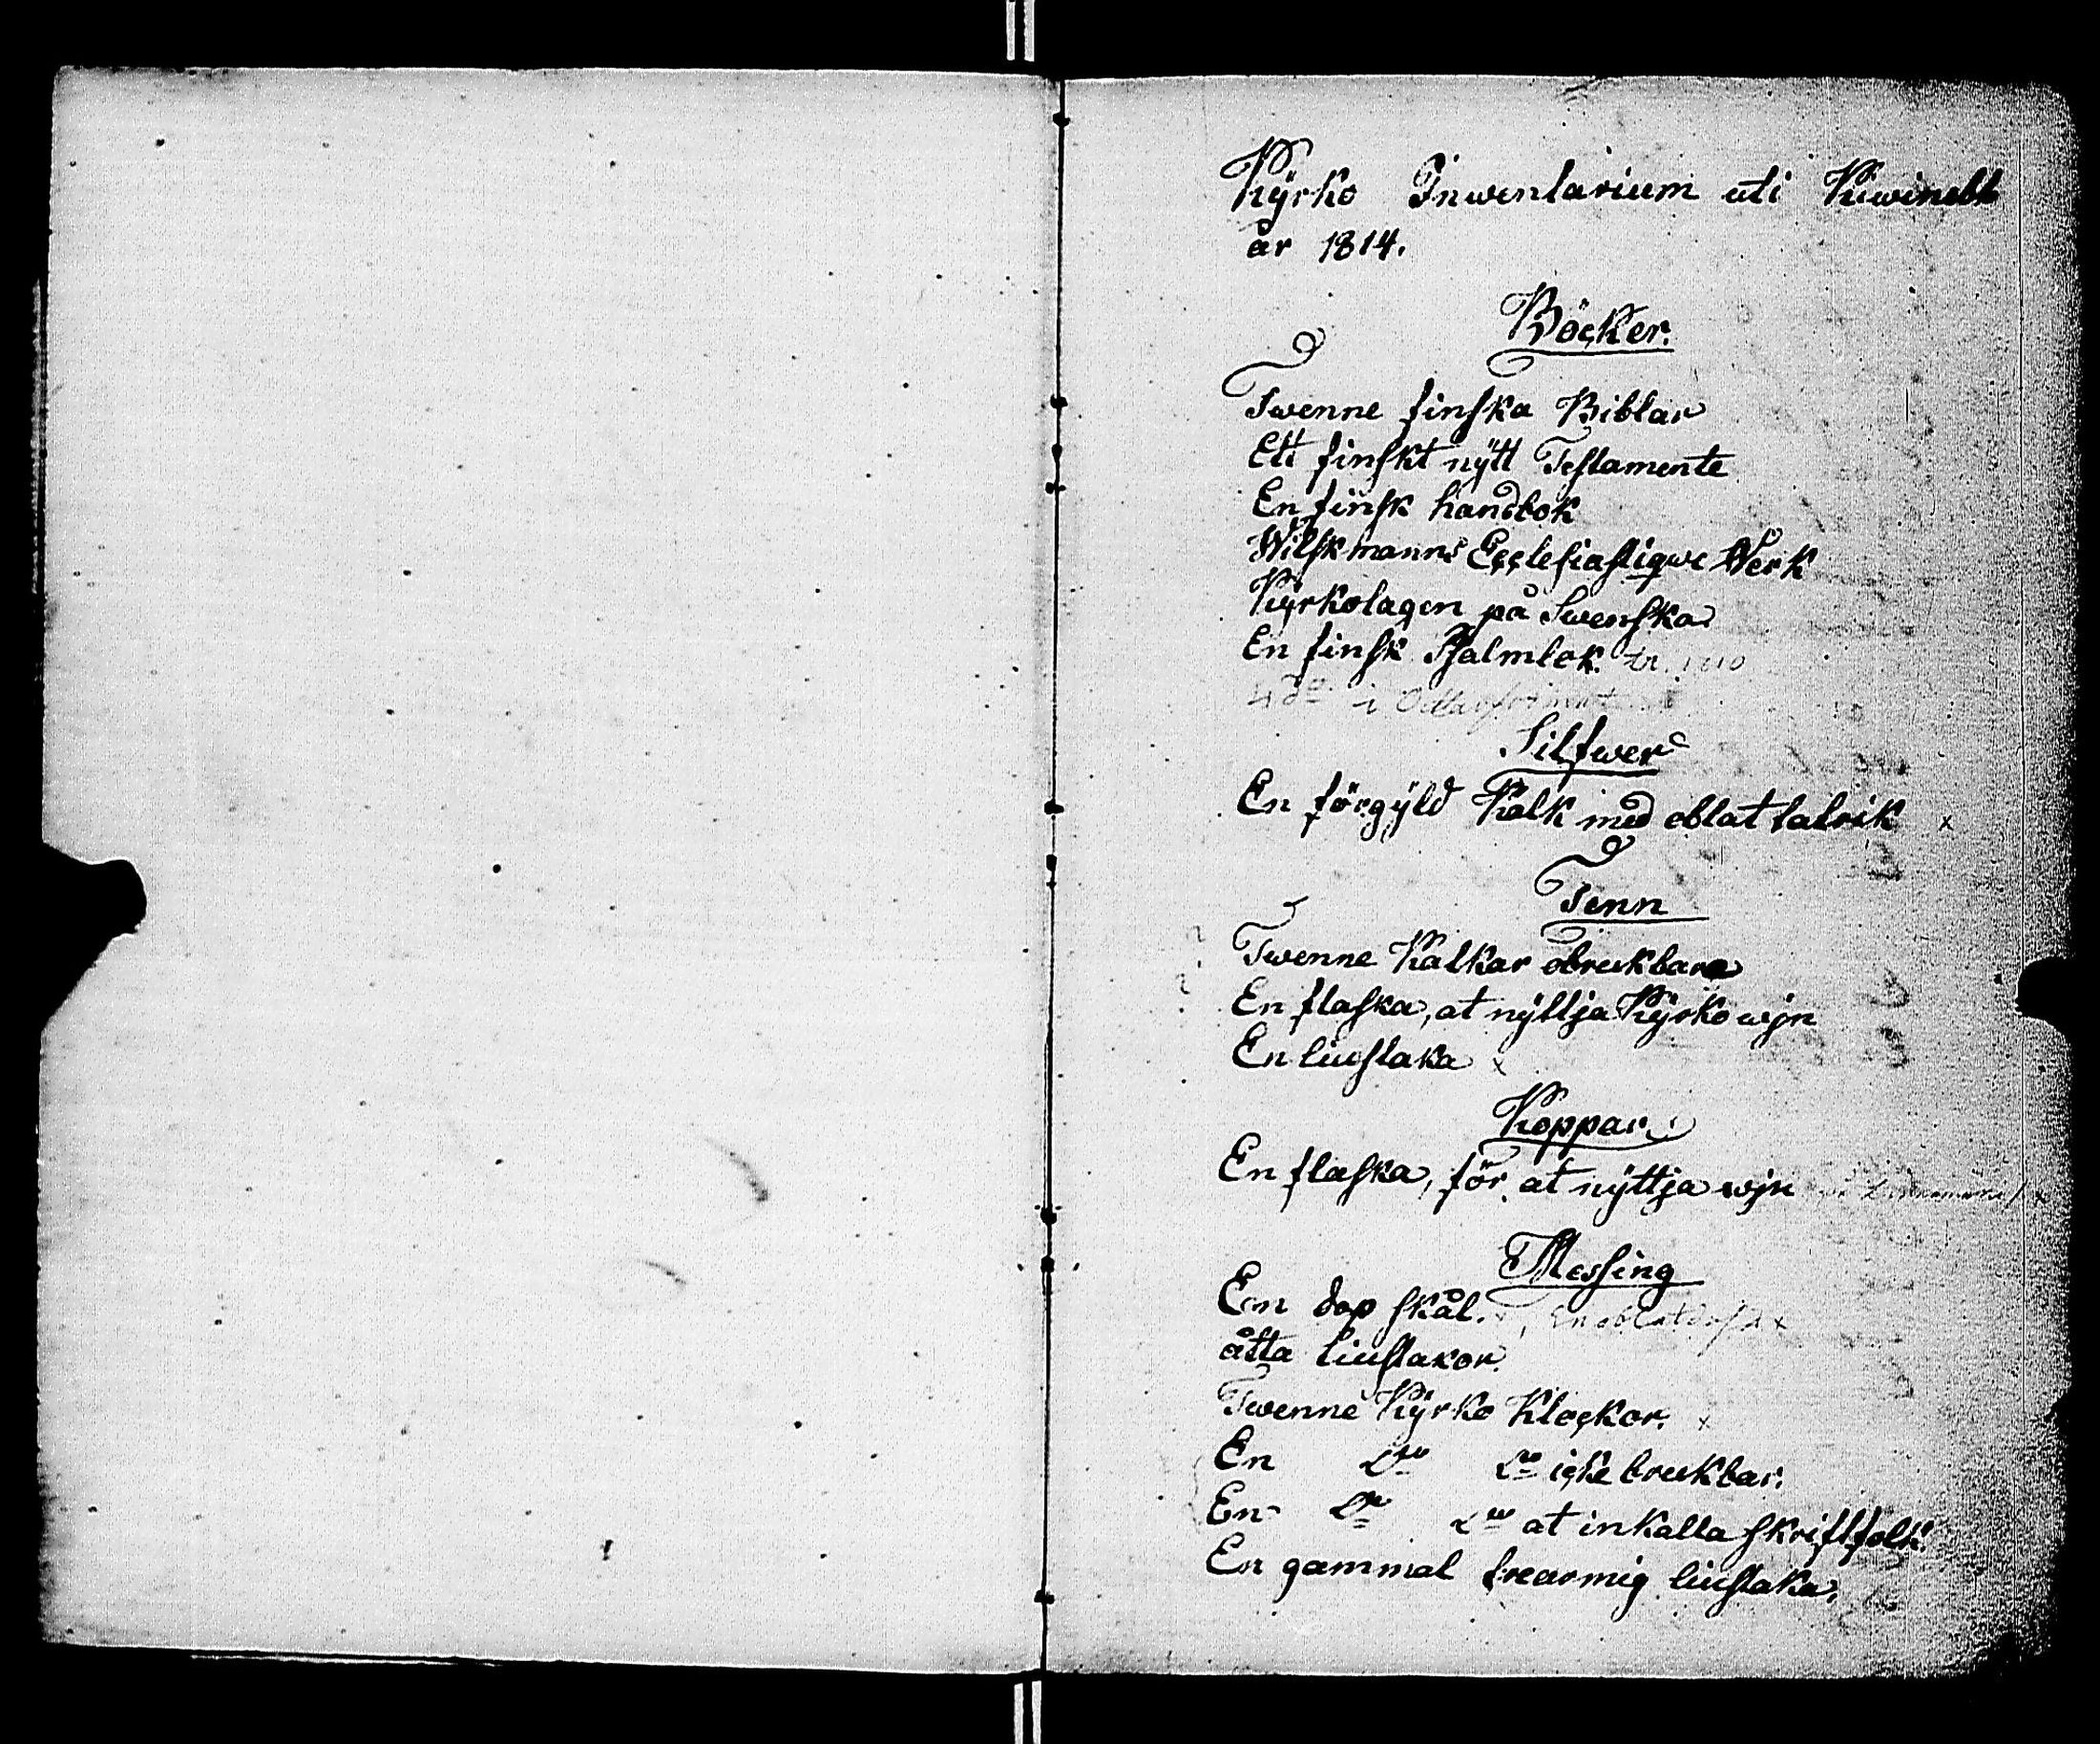 Kyrko Inwentarium uti Kiwinebb
år 1814.
Böcker.
Twenne finska Biblar
Ett finskt nytt Testamente
En finsk handbok
Wilskmanns Ecclesiastiqve Werk
Kyrkolagen på Swenska
En finsk Psalmbok
4 do i
Silfwer
En förgyld Kalk med oblat fatrik x
Tenn
Twenne Kalkar obrukbara
En flaska, at nyttja Kyrko wjn
En liustaka x
Koppar
En flaska, för at nyttja wjn
Messing
En dop skål. x, En oblatdosa x
åtta liustakor
Twenne Kyrko Klockor. x
En Do Do icke brukbar.
En Do Do at inkalla skriftfolk.
En gammal trearmig liustaka.